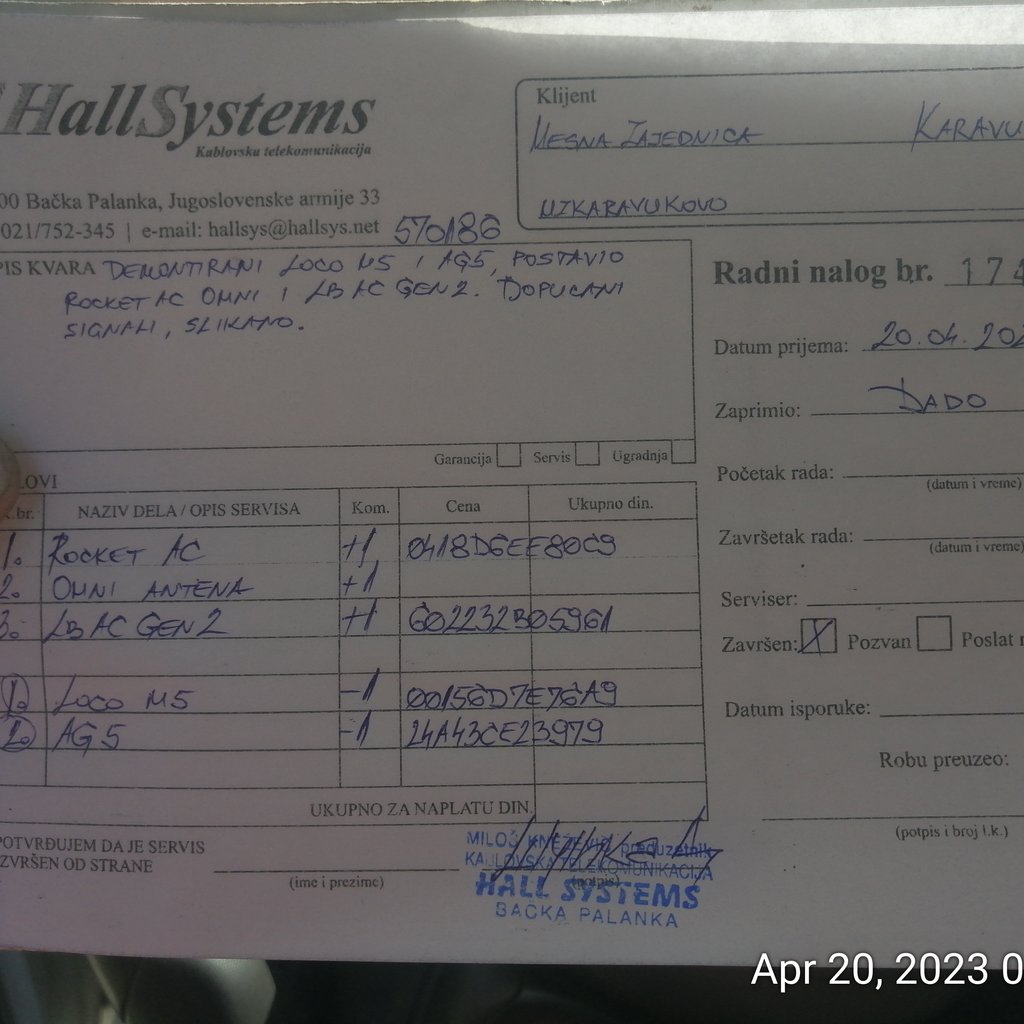 HallSystems
Kablovska telekomunikacija
00 Bačka Palanka, Jugoslovenske armije 33
021/752-345 | e-mail: hallsys@hallsys.net
570186
Klijent
MESNA ZAJEDNICA KARAVU
MZKARAVUKOVO
PIS KVARA DEMONTIRANI LOCO M5 I AG5, POSTAVIO
ROCKET AC OMNI I LB AC GEN2. DOPUCANI
SIGNALI, SLIKANO.
Garancija Servis Ugradnja
Radni nalog br. 174
Datum prijema: 20.04.202
Zaprimio: DADO
Početak rada:
(datum i vreme)
Završetak rada:
(datum i vreme)
Serviser:
Završen: X Pozvan Poslat
Datum isporuke:
Robu preuzeo:
(potpis i broj l.k.)
LOVI
.br. NAZIV DELA / OPIS SERVISA Kom. Cena Ukupno din.
1. ROCKET AC +1 0418D6EE80C9
2. OMNI ANTENA +1
3. LB AC GEN2 +1 602232B05961
1. LOCO M5 -1 00156D7E76A9
2. AG5 -1 24A43CE23979
UKUPNO ZA NAPLATU DIN.
POTVRĐUJEM DA JE SERVIS
IZVRŠEN OD STRANE
(ime i prezime)
(potpis)
MILOŠ KNEŽEVIĆ preduzetnik
KABLOVSKA TELEKOMUNIKACIJA
HALL SYSTEMS
BAČKA PALANKA
Apr 20, 2023 0